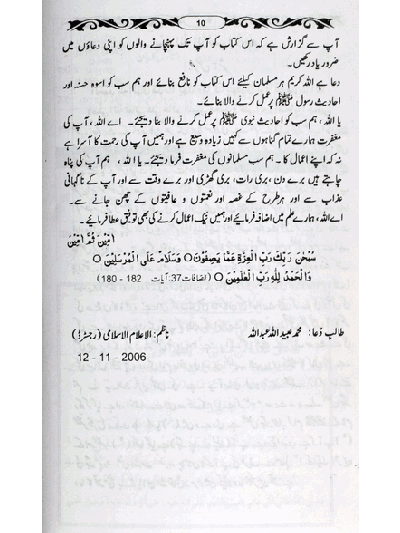 10
آپ سے گزارش ہے کہ اس کتاب کو آپ تک پہنچانے والوں کو اپنی دعاؤں میں
ضرور یاد رکھیں۔
دعا ہے اللہ کریم ہر مسلمان کیلئے اس کتاب کو نافع بنائے اور ہم سب کو اسوہ حسنہ اور
احادیث رسول ﷺ پر عمل کرنے والا بنائے۔
یا اللہ، ہم سب کو احادیث نبوی ﷺ پر عمل کرنے والا بنا دیجئے۔ اے اللہ، آپ کی
مغفرت ہمارے تمام گناہوں سے کہیں زیادہ وسیع ہے اور ہمیں آپ کی رحمت کا آسرا ہے
نہ کہ اپنے اعمال کا۔ ہم سب مسلمانوں کی مغفرت فرما دیجئے۔ یا اللہ، ہم آپ کی پناہ
چاہتے ہیں برے دن، بری رات، بری گھڑی اور برے وقت سے اور آپ کے ناگہانی
عذاب سے اور ہر طرح کے غصہ اور نعمتوں و عافیتوں کے چھن جانے سے۔
اے اللہ، ہمارے علم میں اضافہ فرمائیے اور ہمیں نیک اعمال کرنے کی بھی توفیق عطا فرمائیے۔
اٰمِیْن ثُمَّ اٰمِیْن
سُبْحٰنَ رَبِّكَ رَبِّ الْعِزَّةِ عَمَّا يَصِفُوْنَ○ وَسَلَامٌ عَلَى الْمُرْسَلِيْنَ○
وَالْحَمْدُ لِلّٰهِ رَبِّ الْعٰلَمِيْنَ○ (الصافات:37، آیات 182 - 180)
طالب دعا: محمد عبید اللہ عبد اللہ
ناظم: الاعلام الاسلامی (رجسٹرڈ)
12 - 11 - 2006